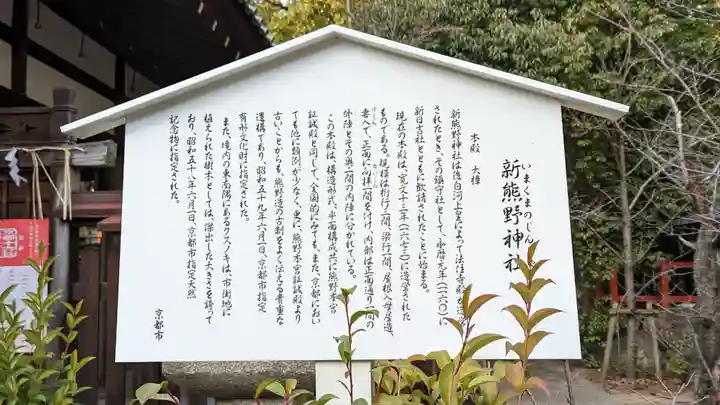 いまくまのじんじゃ
新熊野神社
本殿　大樟
新熊野神社は後白河上皇によって法住寺殿が造営
されたとき、その鎮守社として、永暦元年(一一六〇)に
新日吉社とともに勧請されたことに始まる。
現在の本殿は、寛文十三年(一六七三)に造営された
ものである。規模は桁行二間、梁行二間、屋根入母屋造、
妻入で、正面に向拝一間を付け、内部は正面通り一間の
外陣とその奥一間の内陣に分かれている。
この本殿は、構造形式、平面構成共に熊野本宮
証誠殿と同じで、全国的にみても、また、京都におい
ても他に類例が少なく、更に、熊野本宮証誠殿より
古いことからも、熊野造の古制をよく伝える貴重な
遺構であり、昭和五十九年六月一日、京都市指定
有形文化財に指定された。
また、境内の東南隅にあるクスノキは、市街地に
植えられた樹木としては、傑出した大きさを誇って
おり、昭和五十八年六月一日、京都市指定天然
記念物に指定された。
京都市